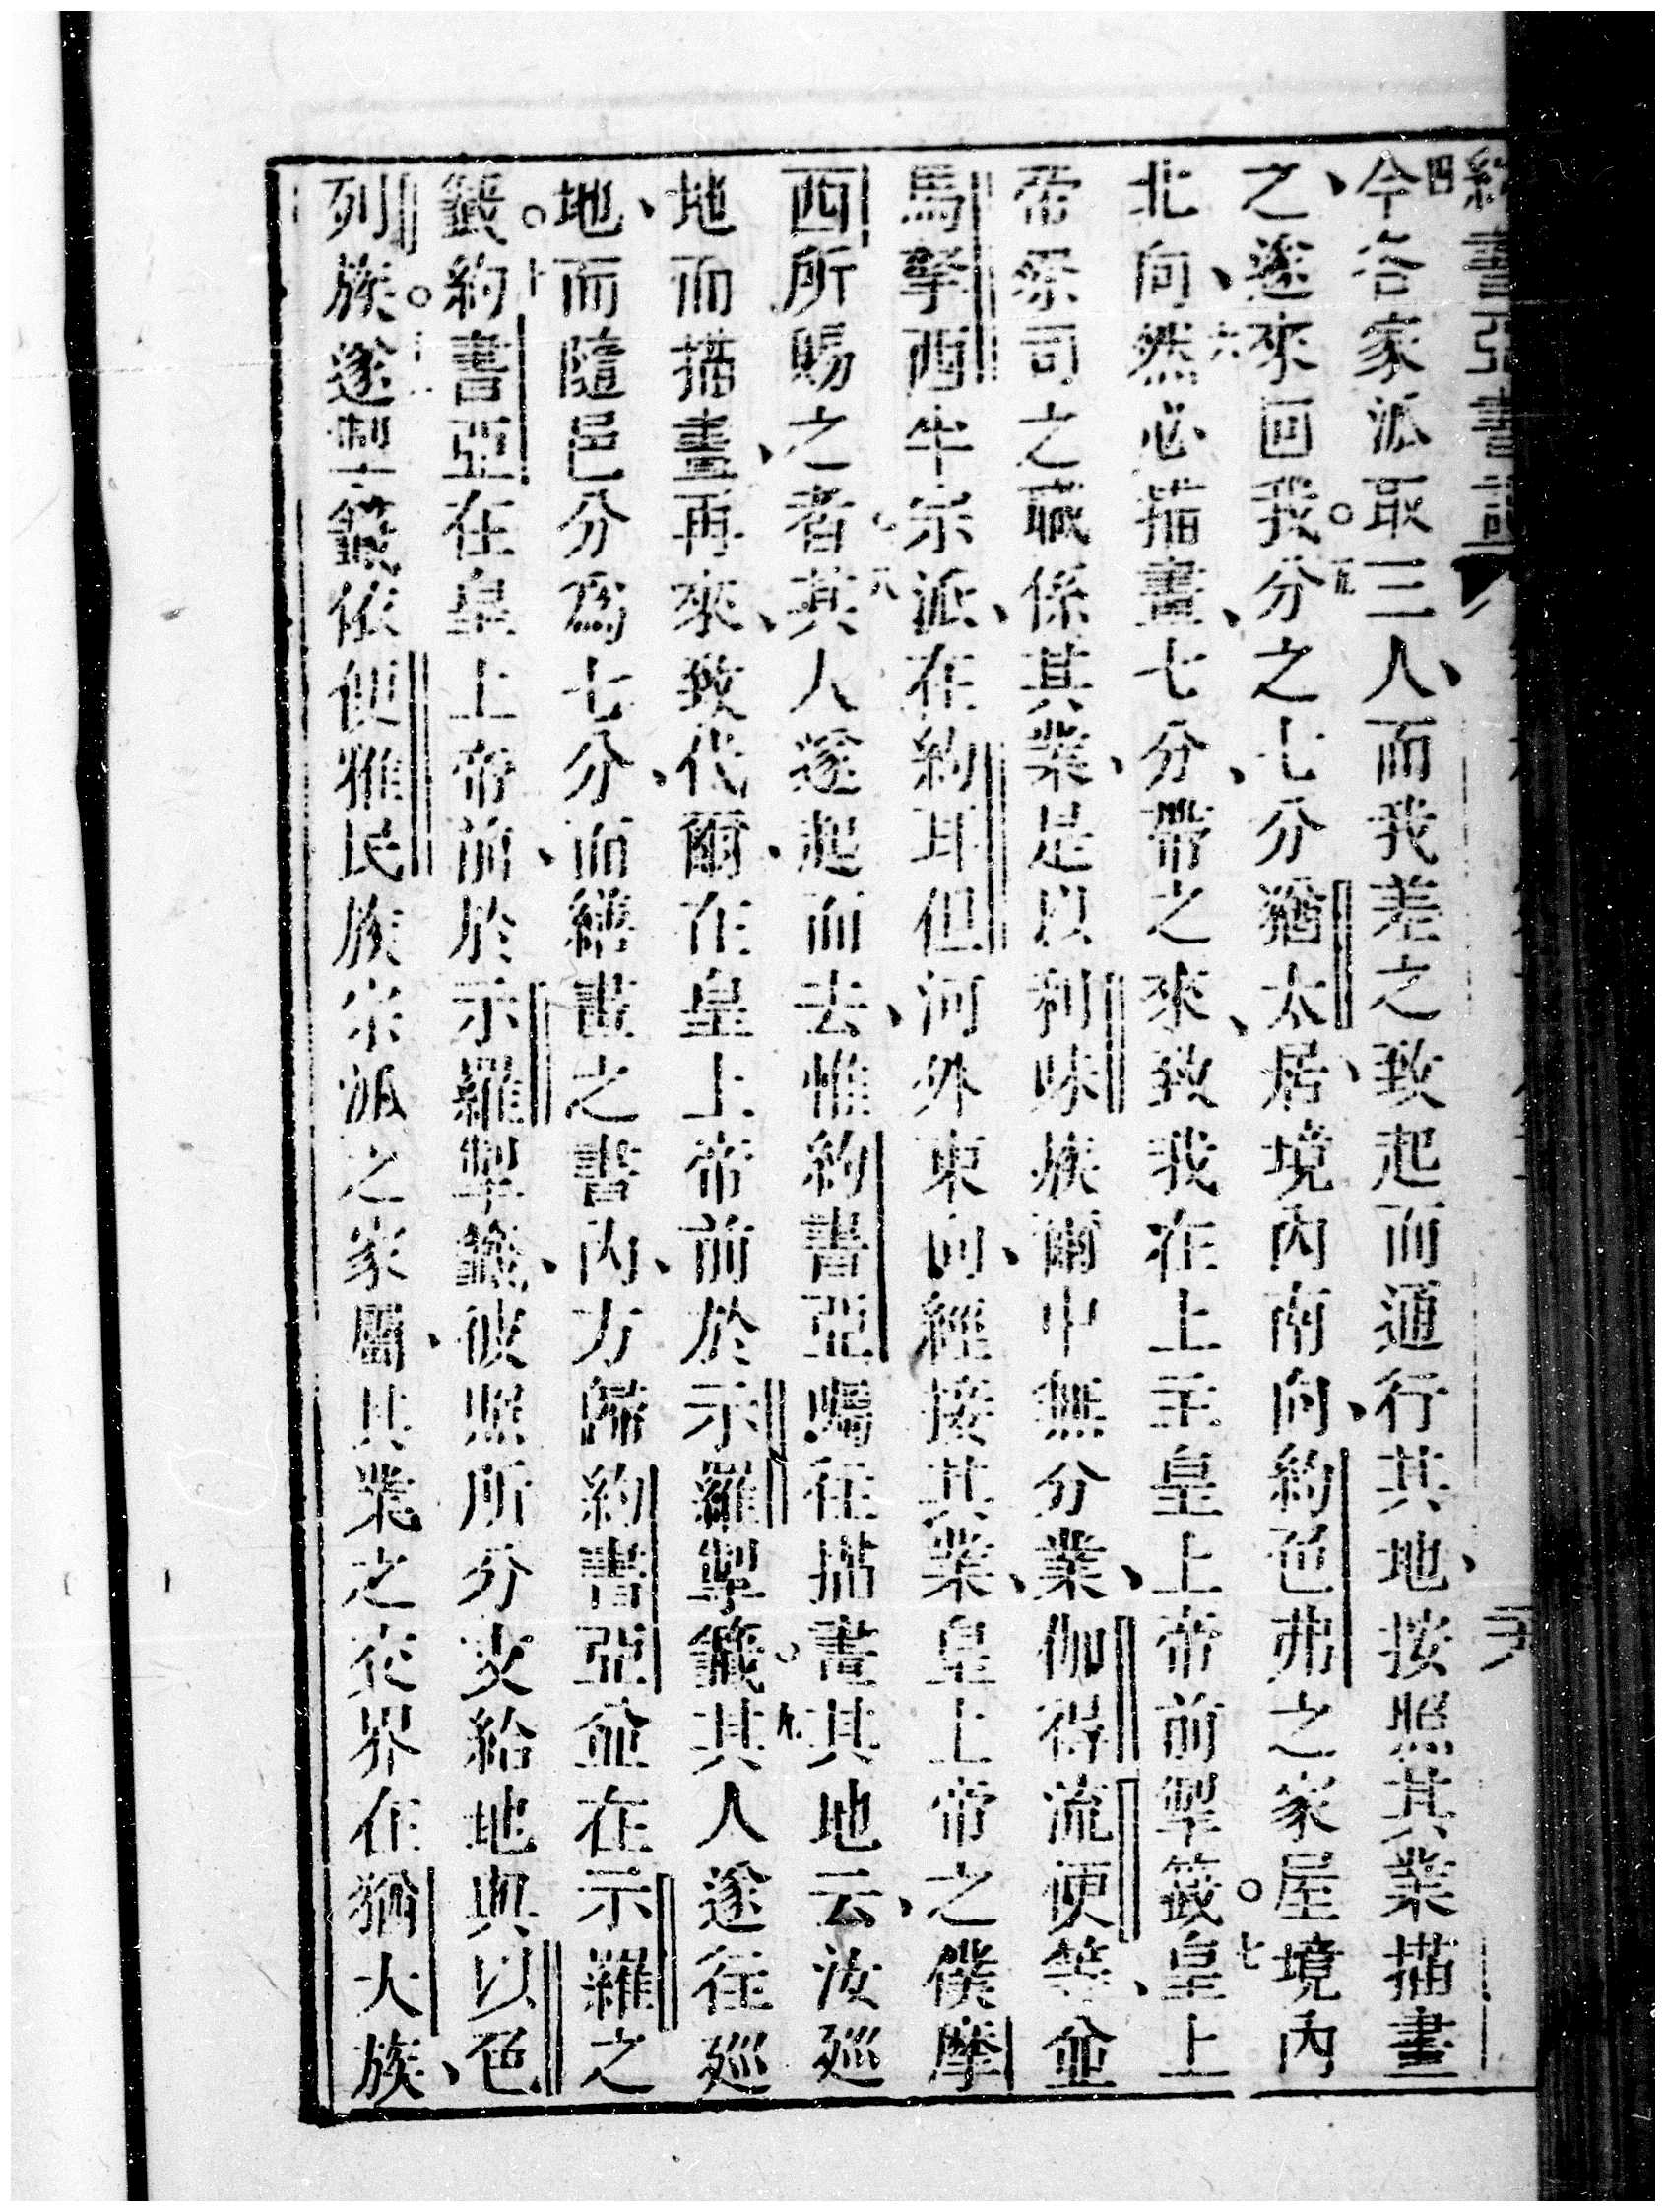 四今各家派取三人、而我差之、致起而通行其地、按照其業描畫
之、遂來回我。五分之七分、猶太居境內南向、約色弗之家屋境內
北向、六然必描畫七分、帶之來致我在上主皇上帝前掣籤。七皇上
帝祭司之職係其業、是以利味族爾中無分業、伽得流便等、並
馬拿西半宗派、在約耳但河外東向、經接其業、皇上帝之僕摩
西所賜之者。八其人遂起而去、惟約書亞囑往描畫其地云、汝廵
地而描畫、再來致代爾在皇上帝前於示羅掣籤。九其人遂往廵
地、而隨邑分爲七分、而繕畫之書內、方歸約書亞並在示羅之
籤。十約書亞在皇上帝前、於示羅掣籤、彼照所分支給地與以色
列族。遂掣籤依便雅民族宗派之家屬、其業之交界在猶大族、